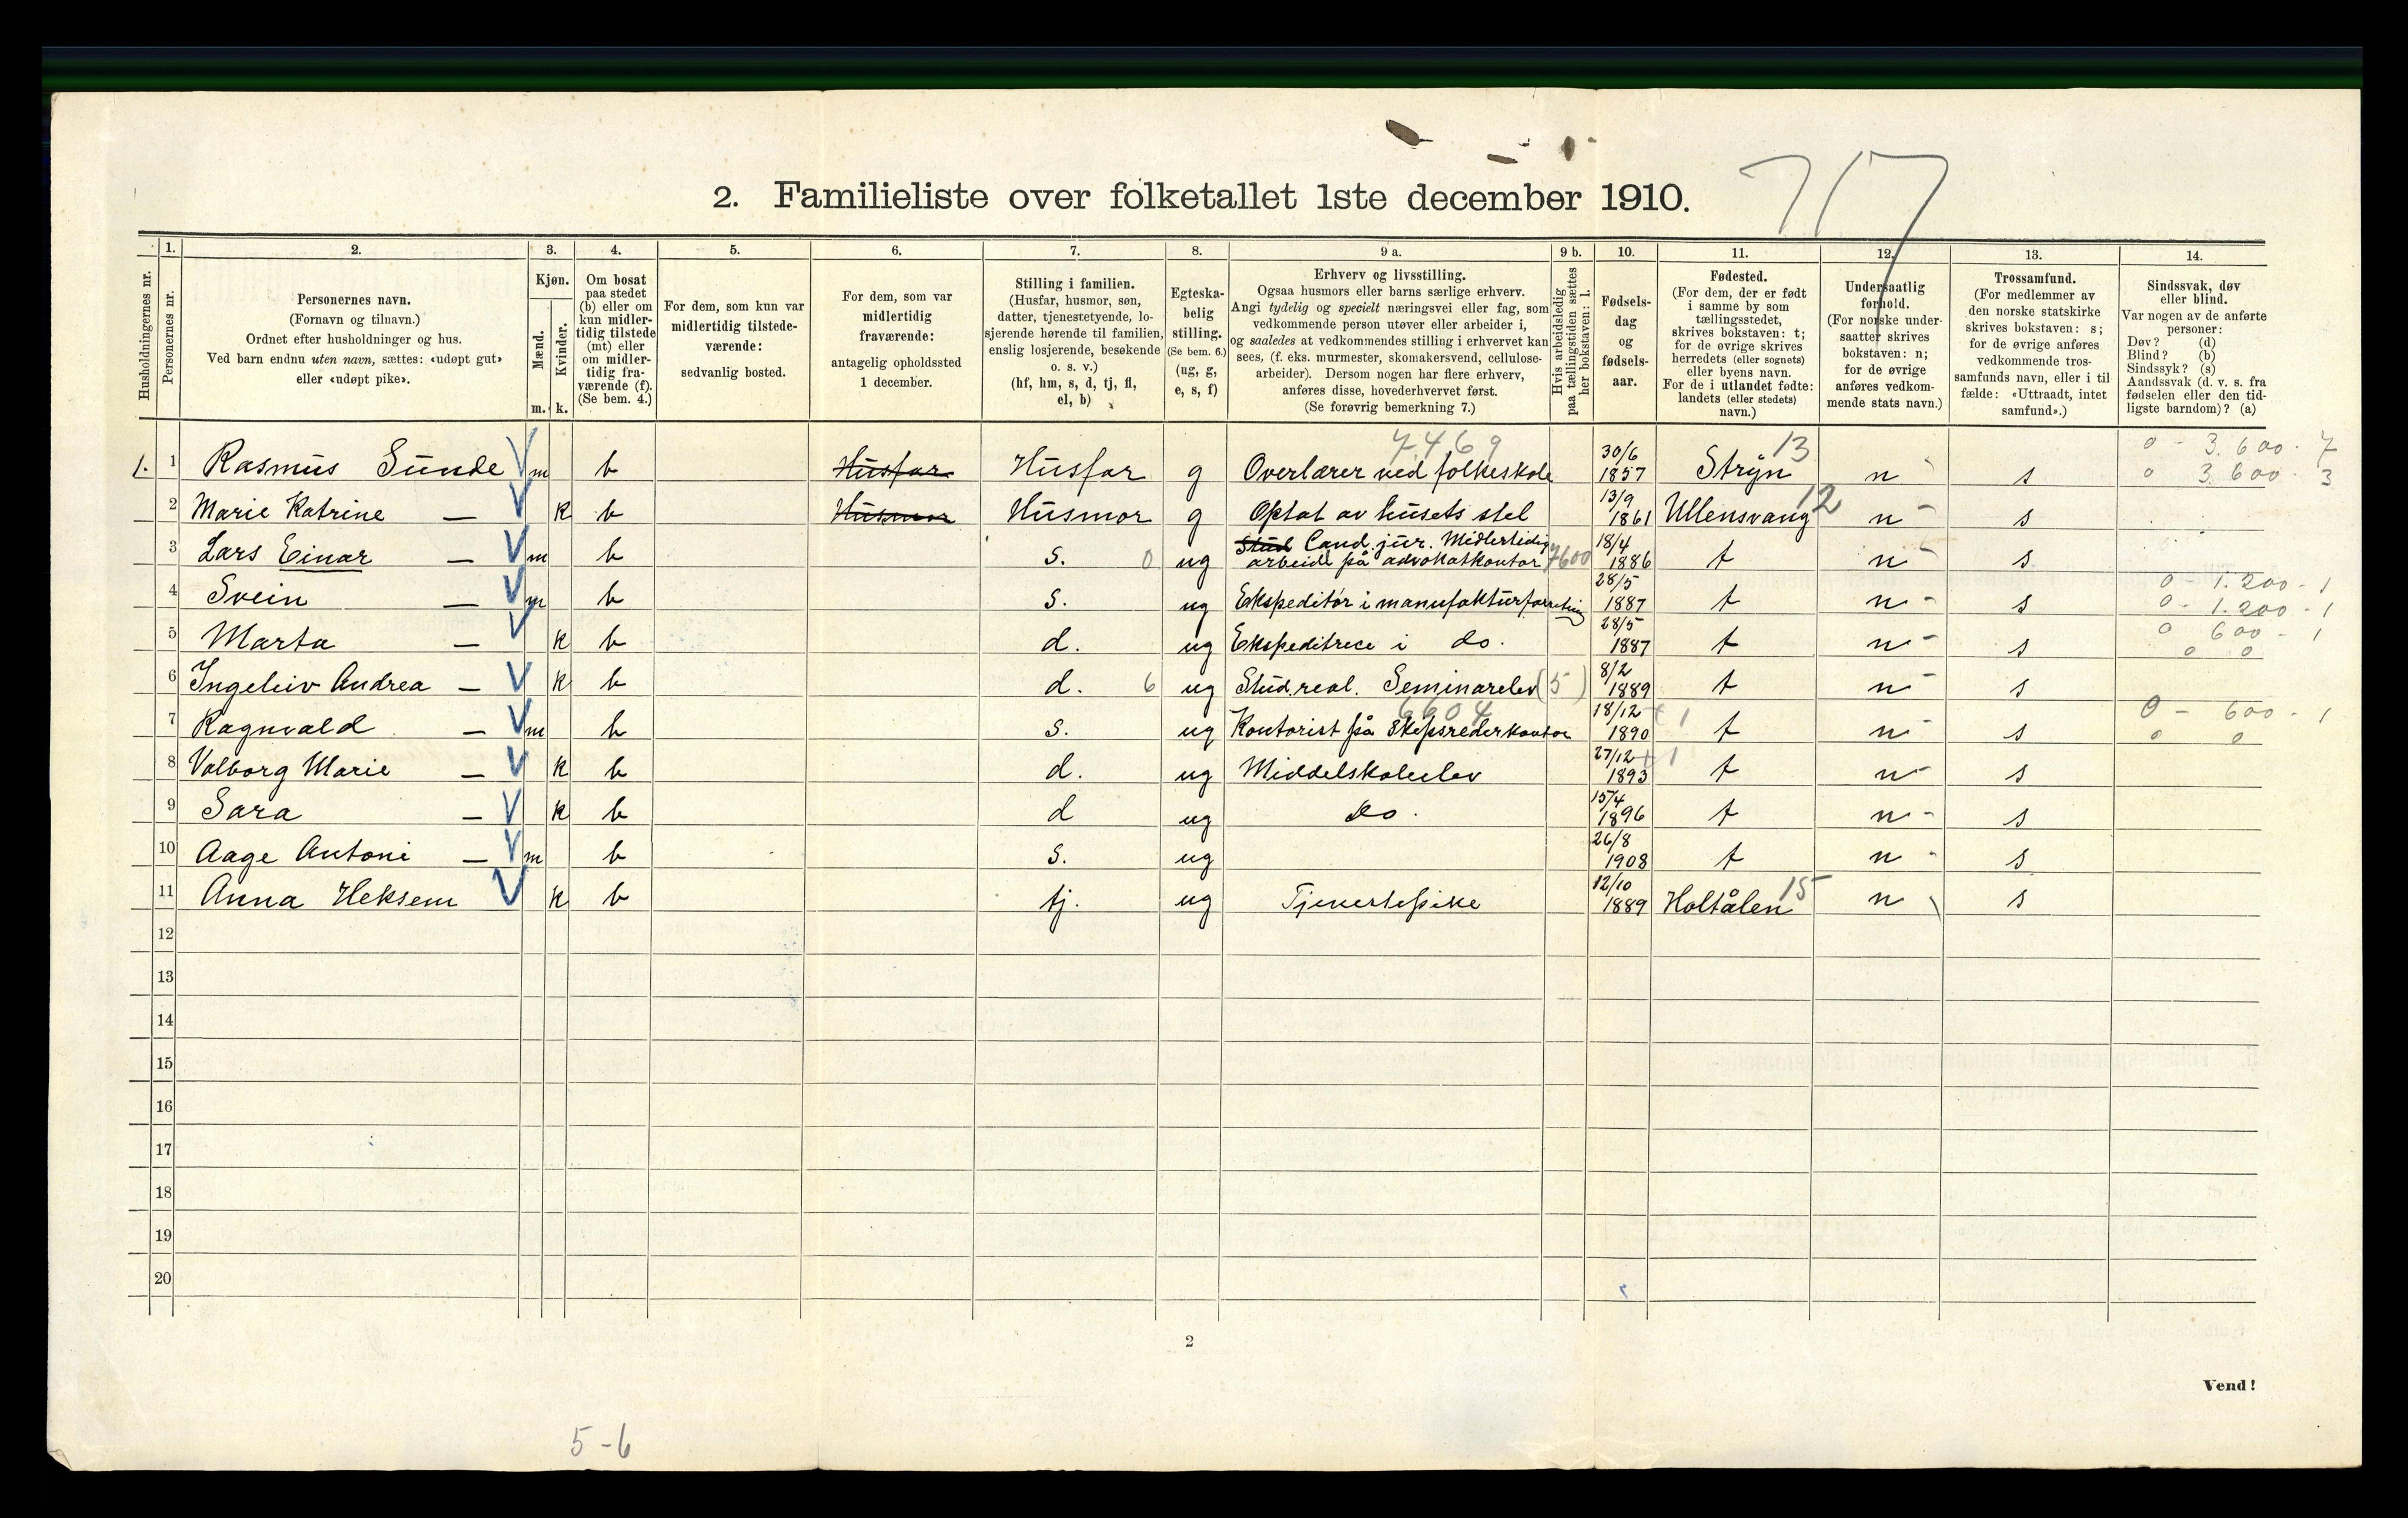 717
2. Familieliste over folketallet 1ste december 1910.
Husholdningernes nr.
1.
Personernes nr.
2.
Personernes navn.
(Fornavn og tilnavn.)
Ordnet efter husholdninger og hus.
Ved barn endnu uten navn, sættes: «udøpt gut»
eller «udøpt pike».
3.
Kjøn.
Mænd.
Kvinder.
m. k.
4.
Om bosat
paa stedet
(b) eller om
kun midler-
tidig tilstede
(mt) eller
om midler-
tidig fra-
værende (f).
(Se bem. 4.)
5.
For dem, som kun var
midlertidig tilstede-
værende:
sedvanlig bosted.
6.
For dem, som var
midlertidig
fraværende:
antagelig opholdssted
1 december.
7.
Stilling i familien.
(Husfar, husmor, søn,
datter, tjenestetyende, lo-
sjerende hørende til familien,
enslig losjerende, besøkende
o. s. v.)
(hf, hm, s, d, tj, fl,
el, b)
8.
Egteska-
belig
stilling.
(Se bem. 6.)
(ug, g,
e, s, f)
9 a.
Erhverv og livsstilling.
Ogsaa husmors eller barns særlige erhverv.
Angi tydelig og specielt næringsvei eller fag, som
vedkommende person utøver eller arbeider i,
og saaledes at vedkommendes stilling i erhvervet kan
sees, (f. eks. murmester, skomakersvend, cellulose-
arbeider). Dersom nogen har flere erhverv,
anføres disse, hovederhvervet først.
(Se forøvrig bemerkning 7.)
9 b.
Hvis arbeidsledig
paa tællingstiden sættes
her bokstaven: l.
10.
Fødsels-
dag
og
fødsels-
aar.
11.
Fødested.
(For dem, der er født
i samme by som
tællingsstedet,
skrives bokstaven: t;
for de øvrige skrives
herredets (eller sognets)
eller byens navn.
For de i utlandet fødte:
landets (eller stedets)
navn.)
12.
Undersaatlig
forhold.
(For norske under-
saatter skrives
bokstaven: n;
for de øvrige
anføres vedkom-
mende stats navn.)
13.
Trossamfund.
(For medlemmer av
den norske statskirke
skrives bokstaven: s;
for de øvrige anføres
vedkommende tros-
samfunds navn, eller i til
fælde: «Uttraadt, intet
samfund».)
14.
Sindssvak, døv
eller blind.
Var nogen av de anførte
personer:
Døv? (d)
Blind? (b)
Sindssyk? (s)
Aandssvak (d. v. s. fra
fødselen eller den tid-
ligste barndom)? (a)
7469 13 0 - 3.600 - 7
1. 1 Rasmus Sunde V m b Husfar Husfar g Overlærer ved folkeskole 30/6 1857 Stryn n s 0 3.600 - 3
2 Marie Katrine — V k b Husmor Husmor g Optat av husets stel 13/9 1861 Ullensvang 12 n - s
3 Lars Einar — V m b s. 0 ug Stud Cand. jur. Midlertidig
arbeide på advokatkontor 7600 18/4 1886 t n - s
0 - 1.200 - 1
4 Svein — V m b s. ug Ekspeditør i manufakturforretning 28/5 1887 t n - s 0 - 1.200 - 1
5 Marta — V k b d. ug Ekspeditrece i do. 28/5 1887 t n - s 0 600 - 1
0 0
6 Ingeleiv Andrea — V k b d. 6 ug Stud. real. Seminarelev (5) 8/2 1889 t n - s
6604 0 - 600 - 1
7 Ragnvald — V m b s. ug Kontorist på Skipsrederkontor 18/12 1890 t 1 t n - s 0 0
8 Valborg Marie — V k b d. ug Middelskoleelev 27/12 1893 t 1 t n - s
9 Sara — V k b d ug do. 15/4 1896 t n - s
10 Aage Antoni — V m b s. ug 26/8 1908 t n - s
11 Anna Heksem V k b tj. ug Tjenestepike 12/10 1889 Holtålen 15 n s
12
13
14
15
16
17
18
19
20
2
Vend!
5-6